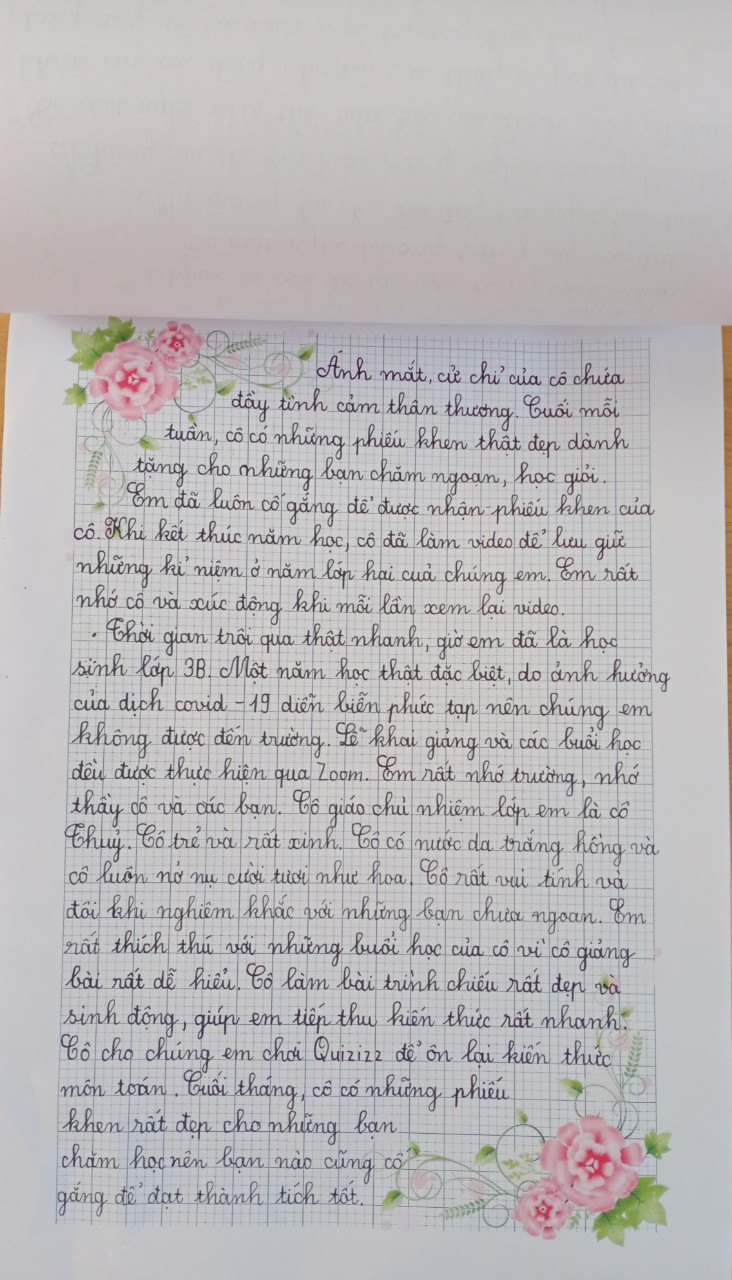 Ánh mắt, cử chỉ của cô chứa
đầy tình cảm thân thương. Cuối mỗi
tuần, cô có những phiếu khen thật đẹp dành
tặng cho những bạn chăm ngoan, học giỏi.
Em đã luôn cố gắng để được nhận phiếu khen của
cô. Khi kết thúc năm học, cô đã làm video để lưu giữ
những kỉ niệm ở năm lớp hai của chúng em. Em rất
nhớ cô và xúc động khi mỗi lần xem lại video.
Thời gian trôi qua thật nhanh, giờ em đã là học
sinh lớp 3B. Một năm học thật đặc biệt, do ảnh hưởng
của dịch covid-19 diễn biến phức tạp nên chúng em
không được đến trường. Lễ khai giảng và các buổi học
đều được thực hiện qua Zoom. Em rất nhớ trường, nhớ
thầy cô và các bạn. Cô giáo chủ nhiệm lớp em là cô
Thuỷ. Cô trẻ và rất xinh. Cô có nước da trắng hồng và
cô luôn nở nụ cười tươi như hoa. Cô rất vui tính và
đôi khi nghiêm khắc với những bạn chưa ngoan. Em
rất thích thú với những buổi học của cô vì cô giảng
bài rất dễ hiểu. Cô làm bài trình chiếu rất đẹp và
sinh động, giúp em tiếp thu kiến thức rất nhanh.
Cô cho chúng em chơi Quizizz để ôn lại kiến thức
môn toán. Cuối tháng, cô có những phiếu
khen rất đẹp cho những bạn
chăm học nên bạn nào cũng cố
gắng để đạt thành tích tốt.